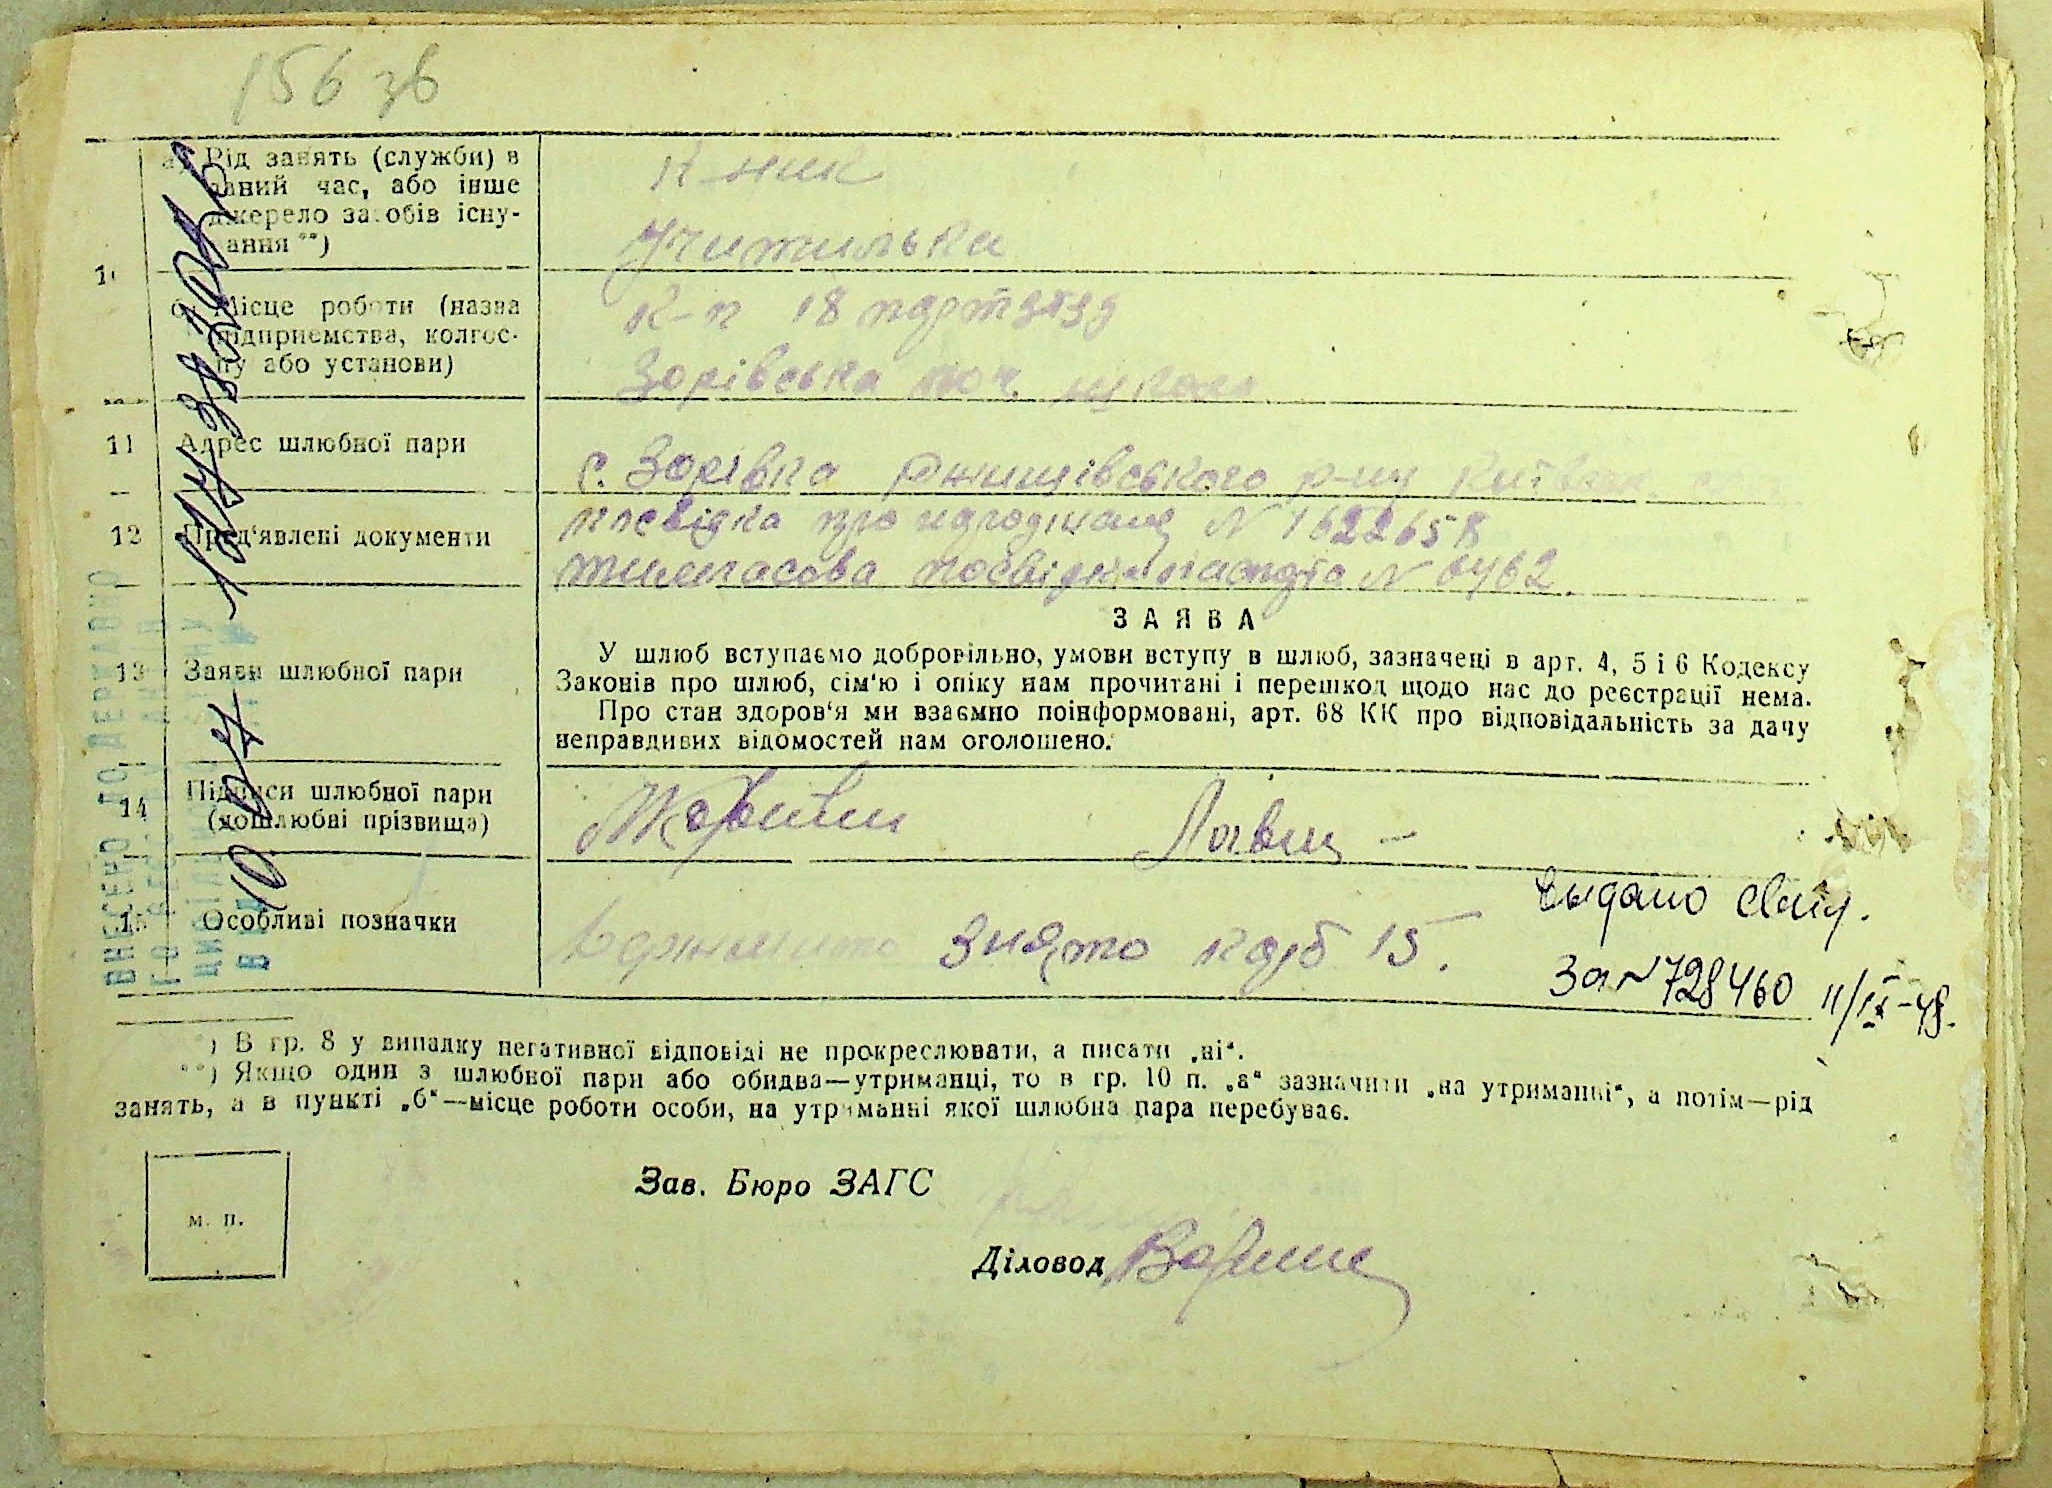 156 зв
а) Рід занять (служби) в
даний час, або інше
джерело засобів існу-
вання **)
к-ник
Учителька
10
б) Місце роботи (назва
підприємства, колгос-
пу або установи)
к-п 18 партз'їзд
Зорівська поч. школа
11 Адрес шлюбної пари
с. Зорівка Ржищівського р-ну Київськ.
12 Пред'явлені документи
посвідка про народження N 1622658
тимчасова посвідка N 0462.
13 Заяви шлюбної пари
ЗАЯВА
У шлюб вступаємо добровільно, умови вступу в шлюб, зазначені в арт. 4, 5 і 6 Кодексу
Законів про шлюб, сім'ю і опіку нам прочитані і перешкод щодо нас до реєстрації нема.
Про стан здоров'я ми взаємно поінформовані, арт. 68 КК про відповідальність за дачу
неправдивих відомостей нам оголошено.
14 Підписи шлюбної пари
(дошлюбні прізвища)
15 Особливі позначки
Знято карб 15.
Выдано свид.
За N 728460 11/IX-48.
ВНЕСЕНО ДО ДЕРЖАВНО
ГО
ЦИВІЛЬНОГО СТАНУ
*) В гр. 8 у випадку негативної відповіді не прокреслювати, а писати „ні“.
**) Якщо один з шлюбної пари або обидва—утриманці, то в гр. 10 п. „а“ зазначити „на утриманні“, а потім—рід
занять, а в пункті „б“—місце роботи особи, на утриманні якої шлюбна пара перебуває.
м. п.
Зав. Бюро ЗАГС
Діловод